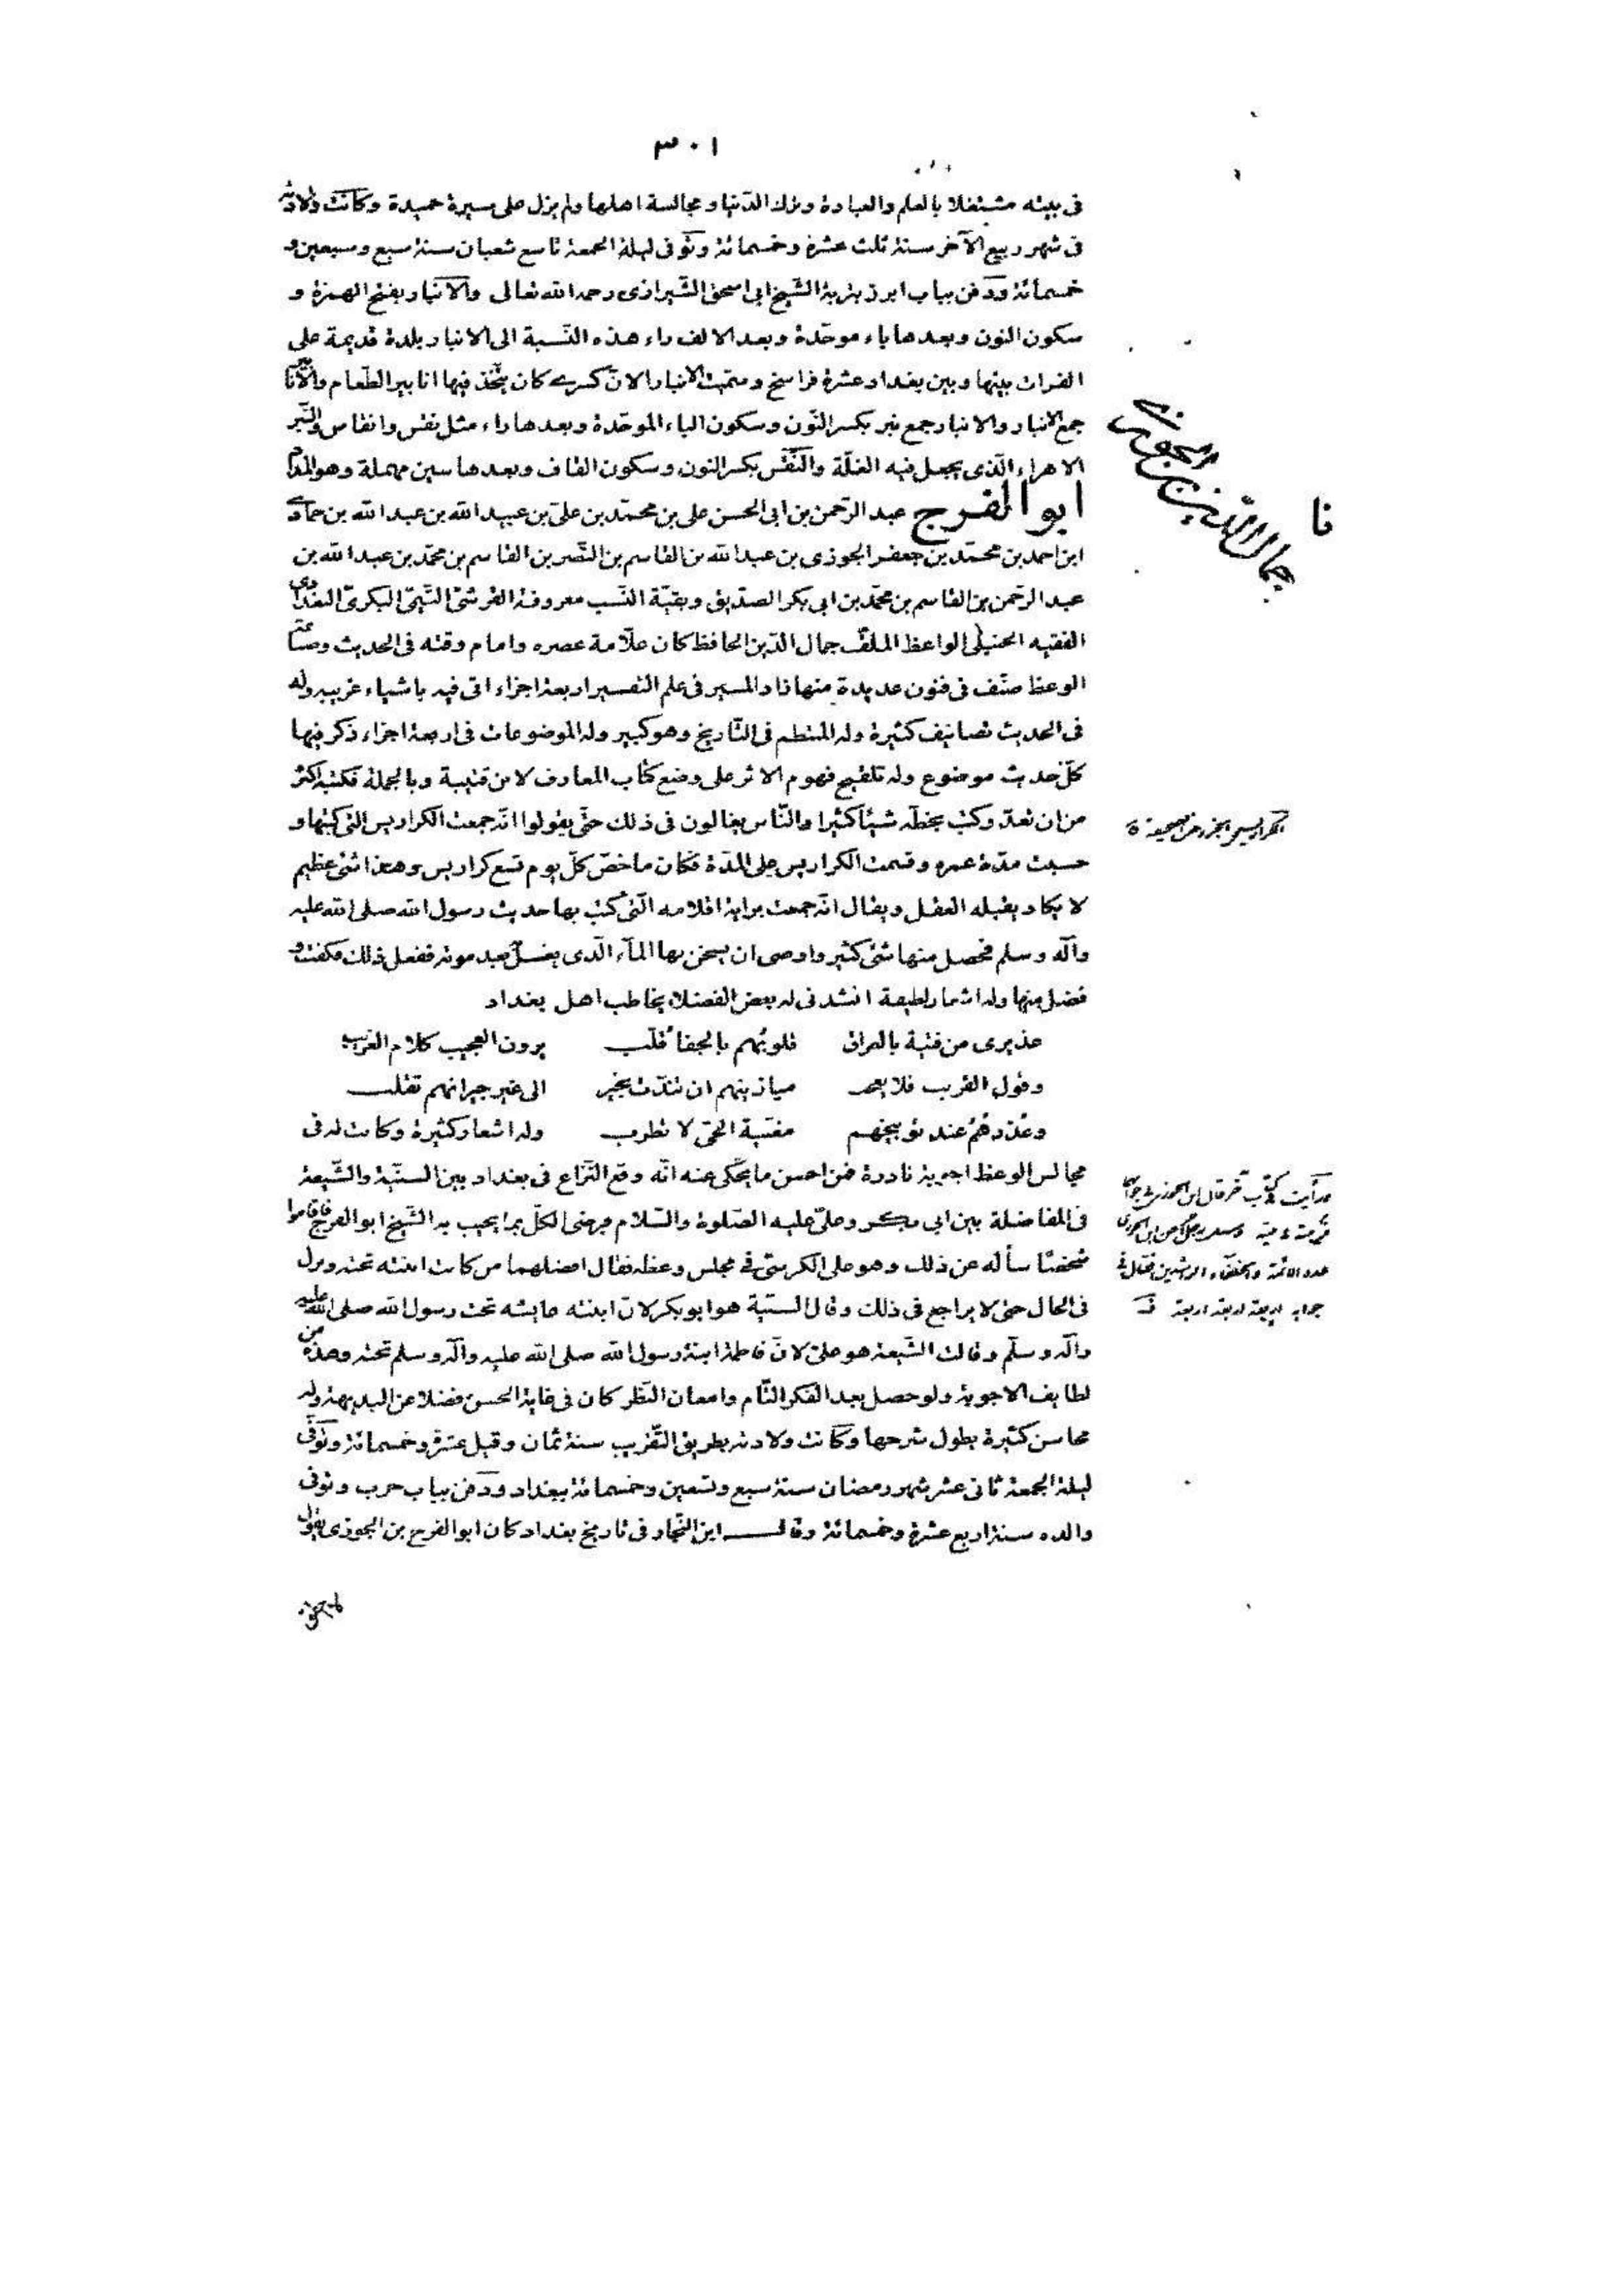 ٣٠١
فى بيته مشتغلا بالعلم والعبادة وترك الدّنيا ومجالسة اهلها ولم يزل على سيرة حميدة وكانت ولادته
فى شهر ربيع الآخر سنة ثلث عشرة وخمسمائة وتوفى ليلة الجمعة تاسع شعبان سنة سبع وسبعين و
خمسمائة ودفن بباب ابرز بتربة الشّيخ ابى اسحق الشّيرازى رحمه الله تعالى والانبار بفتح الهمزة و
سكون النون وبعدها باء موحّدة وبعد الالف راء هذه النّسبة الى الانبار بلدة قديمة على
الفرات بينها وبين بغداد عشرة فراسخ وسمّيت الانبار لانّ كسرى كان يتّخذ فيها انابير الطّعام والانابير
جمع الانبار والانبار جمع نبر بكسر النّون وسكون الباء الموحّدة وبعدها راء مثل نقس وانقاس والنّبر
الاهراء الّذى يجعل فيه الغلّة والنّقس بكسر النون وسكون القاف وبعدها سين مهملة وهو المداد
ابو الفرج عبد الرّحمن بن ابى الحسن على بن محمّد بن علىّ بن عبيد الله بن عبد الله بن حمادى
ابن احمد بن محمّد بن جعفر الجوزى بن عبد الله بن القاسم بن النّضر بن القاسم بن محمّد بن عبد الله بن
عبد الرّحمن بن القاسم بن محمّد بن ابى بكر الصدّيق وبقيّة النّسب معروفة القرشىّ التّيمىّ البكرىّ البغدادى
الفقيه الحنبلى الواعظ الملقّب جمال الدّين الحافظ كان علّامة عصره وامام وقته فى الحديث وصناعة
الوعظ صنّف فى فنون عديدة منها زاد المسير فى علم التفسير اربعة اجزاء اتى فيه باشياء غريبه وله
فى الحديث تصانيف كثيرة وله المنتظم فى التّاريخ وهو كبير وله الموضوعات فى اربعة اجزاء ذكر فيها
كلّ حديث موضوع وله تلقيح فهوم الاثر على وضع كتاب المعارف لابن قتيبة وبالجملة فكتبه اكثر
من ان تعدّ وكتب بخطّه شيئا كثيرا والنّاس يغالون فى ذلك حتّى يقولوا انّه جمعت الكراريس الّتى كتبها و
حسبت مدّة عمره وقسمت الكراريس على المدّة فكان ما خصّ كلّ يوم تسع كراريس وهذا شئ عظيم
لا يكاد يقبله العقل ويقال انّه جمعت براية اقلامه الّتى كتب بها حديث رسول الله صلى الله عليه
وآله وسلم فحصل منها شئ كثير واوصى ان يسخن بها الماء الّذى يغسل بعد موته ففعل ذلك فكفت و
فضل منها وله اشعار لطيفة انشدنى له بعض الفضلاء يخاطب اهل بغداد
عذيرى من فتية بالعراق قلوبهم بالجفا قلّب يرون العجيب كلام الغريب
وقول القريب فلا يعجب ميازيبهم ان تندّت بخير الى غير جيرانهم تقلب
وعذرهم عند توبيخهم مغنّية الحىّ لا تطرب وله اشعار كثيرة وكانت له فى
مجالس الوعظ اجوبة نادرة فمن احسن ما يحكى عنه انّه وقع النّزاع فى بغداد بين السنّية والشّيعة
فى المفاضلة بين ابى بكر وعلىّ عليه الصّلوة والسّلام فرضى الكلّ بما يجيب به الشّيخ ابو الفرج فاقاموا
شخصّا سأله عن ذلك وهو على الكرسىّ فى مجلس وعظه فقال افضلهما من كانت ابنته تحته ونزل
فى الحال حتى لا يراجع فى ذلك وقال السنّية هو ابو بكر لانّ ابنته عايشه تحت رسول الله صلى الله عليه
وآله وسلّم وقالت الشّيعة هو علىّ لانّ فاطمة ابنة رسول الله صلى الله عليه وآله وسلم تحته وهذه من
لطايف الاجوبة ولو حصل بعد الفكر التّام وامعان النّظر كان فى غاية الحسن فضلا عن البديهة وله
محاسن كثيرة يطول شرحها وكانت ولادته بطريق التّقريب سنة ثمان وقيل عشرة وخمسمائة وتوفّى
ليلة الجمعة ثانى عشر شهر رمضان سنة سبع وتسعين وخمسمائة ببغداد ودفن بباب حرب وتوفى
والده سنة اربع عشرة وخمسمائة وقال ابن النّجار فى تاريخ بغداد كان ابو الفرج بن الجوزى يقول
جمال الدّين بن الجوزى
عدد الائمة والخلفاء الراشدين فقال فى
جوابه اربعة اربعة اربعة